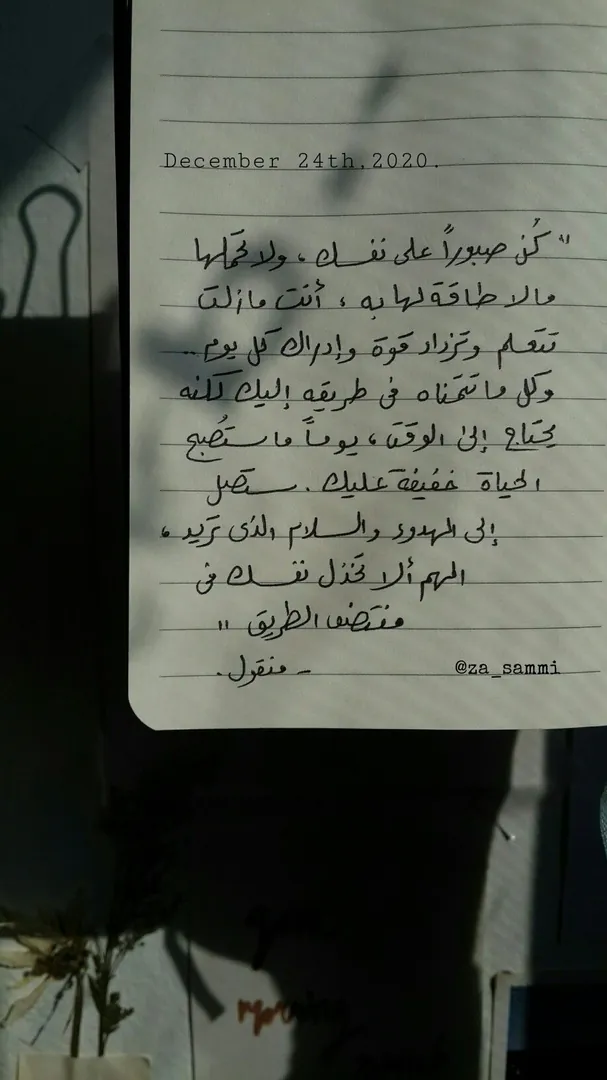 December 24th,2020.
" كُن صبوراً على نفسك ، ولا تحملها
مالا طاقة لها به ، أنت مازلت
تتعلم وتزداد قوة وإدراك كل يوم ..
وكل ما تتمناه في طريقه إليك لكنه
يحتاج إلى الوقت ، يوماً ما ستُصبح
الحياة خفيفة عليك . ستصل
إلى الهدوء والسلام الذى تريد ،
المهم ألا تخذل نفسك في
منتصف الطريق "
- منقول .
@za_sammi